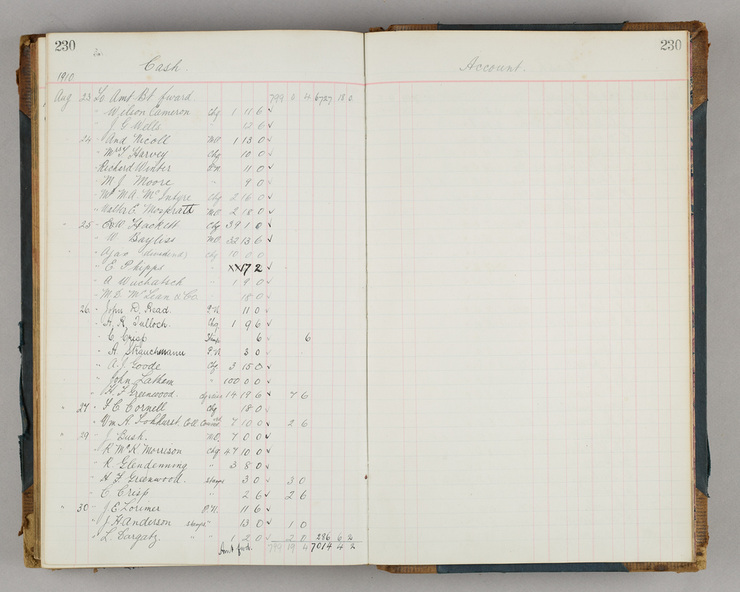 230
Cash.
1910
Aug 23 To Amt Bt forward 799 4 6727 18 2
" Wilson Cameron Chq 1 11 6 ✓
" J. G. Wells 12 6 ✓
24 " And Nicoll M.O. 1 13 0 ✓
" Mrs T Harvey Chq 10 0 ✓
" Richard Winter P.N. 11 0 ✓
" M. J. Moore " 9 0 ✓
" Mr M.A. McIntyre Chq 2 16 0 ✓
" Walter E. Mospratt M.O. 2 18 0 ✓
" 25 " E.W. Hackett Chq 39 1 0 ✓
" W. Bayliss M.O. 32 13 6 ✓
" Ajax (dividend) Chq 10 0 0
" E Phipps " 7 2 ✓
" A. Wuchatsch " 1 9 0
" M.D. McLean & Co. 18 0
26 " John D. Read. P.N. 11 0
" H. R. Tulloch. Chq. 1 9 6
" C. Crisp Stamps 6 6
" A. Strauchmann P.N. 3 0
" A. J. Goode Chq 3 15 0
" John Latham " 100 0 0
" H. F. Greenwood. 14 19 6 7 6
" 27 " F. C. Cornell Chq. 18 0
" Wm. A. Tokhurst. Coll. 7 10 0 2 6
" 29 " J. Bush. M.O. 7 0 0
" R. McK. Morrison Chq 47 10 0
" R. Glendenning " 3 8 0
" H. F. Greenwood. Stamps 3 0 3 0
" C. Crisp " 2 6 2 6
" 30 " J. E. Lorimer P.N. 11 6
" J. H. Anderson stamps 13 0 1 0
" L. Cargatz. " 1 2 0 2 0 286 6 2
Amt fwd. 799 19 4 7014 4 2
230
Account.